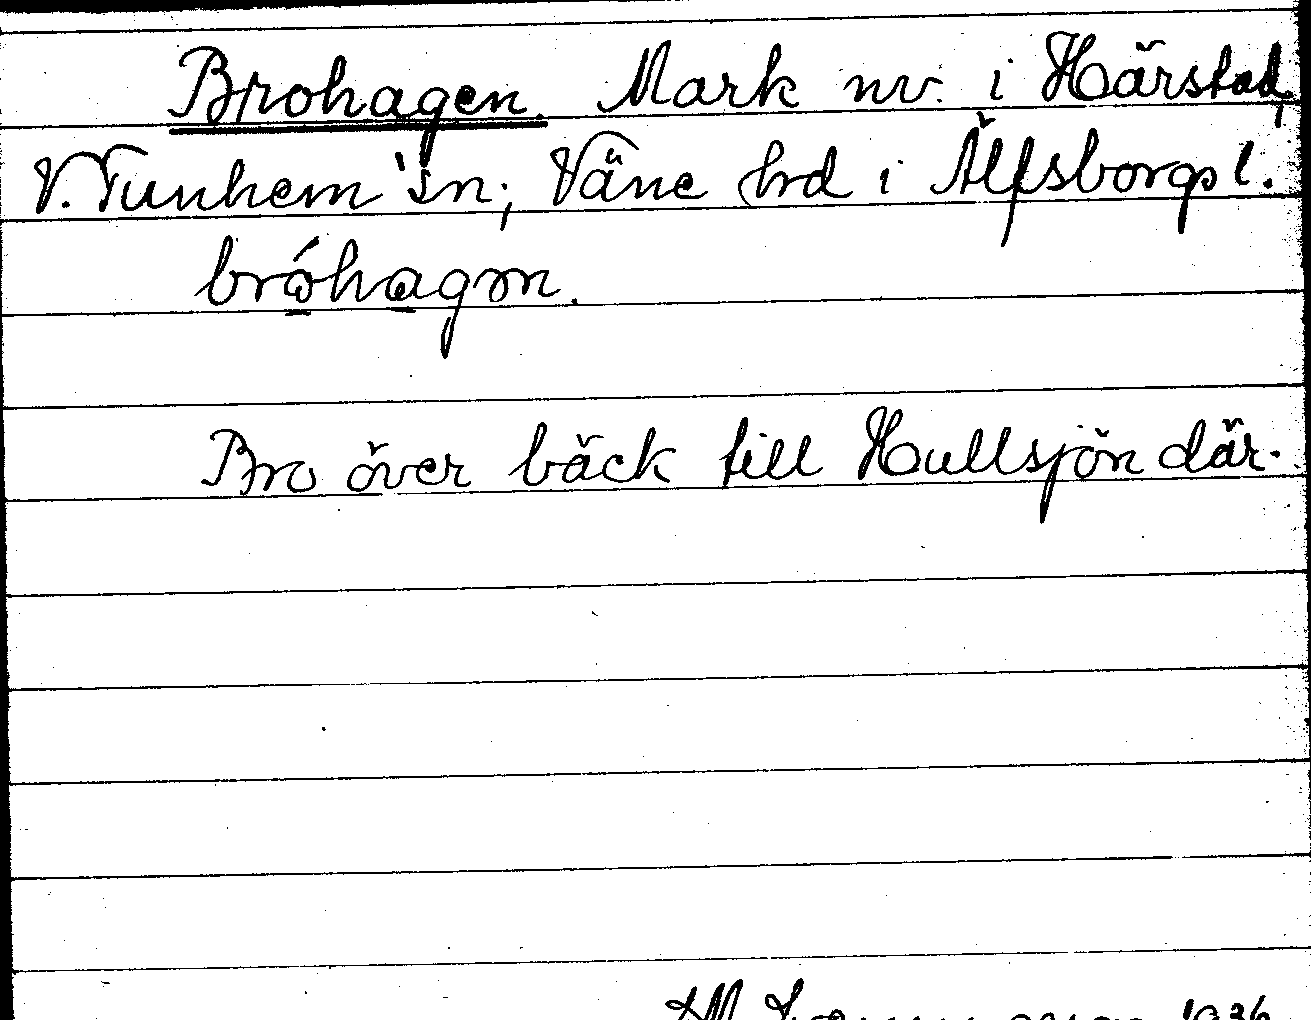 Brohagen. Mark nv. i Härstad,
V. Tunhem sn; Väne hrd i Älfsborgs l.
bró̱ha̱gən.
Bro över bäck till Hullsjön där.
1936